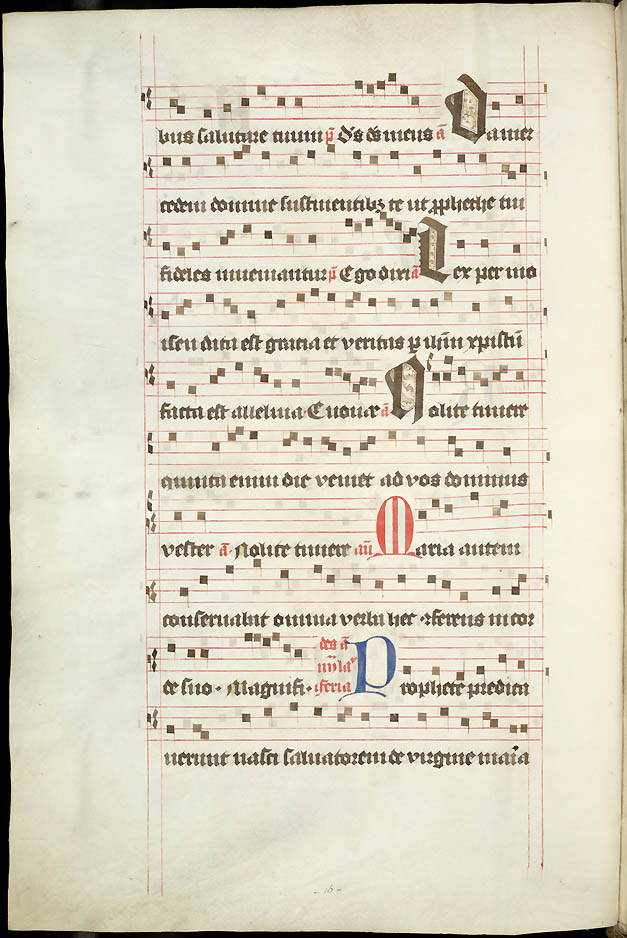 bus salutare tuum p̄ d's ds meus ā Da mer
cedem domine sustinentibz te ut prophethe tui
fideles inueniantur p̄ Ego dixi ā Lex per mo
isen data est gracia et veritas p ihm xpistū
facta est alleluia Euouae ā Nolite timere
quinta enim die veniet ad vos dominus
vester ā Nolite timere aū Maria autem
conseruabat omnia verba hec ferens in cor
de suo Magnifi feria Prophete predica
uerunt nasci saluatorem de virgine maria
16